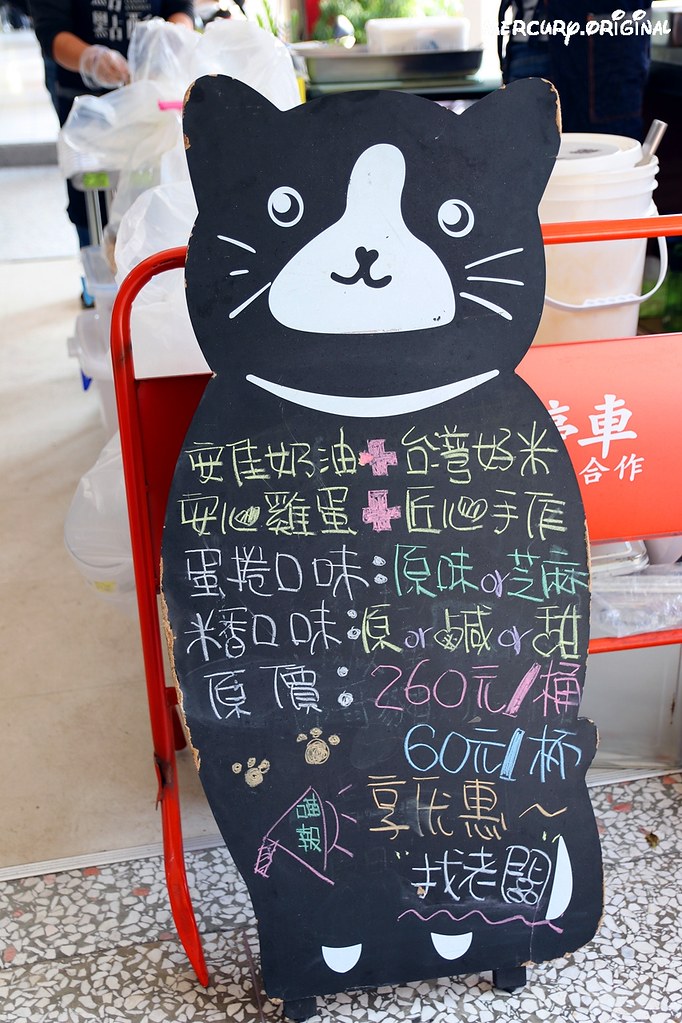 MERCURY.ORIGINAL
停車
合作
安佳奶油+台灣好米
安心雞蛋+匠心手作
蛋捲口味:原味or芝麻
米香口味:原or鹹or甜
原價:260元/桶
60元/杯
喵報
享优惠~
找老闆